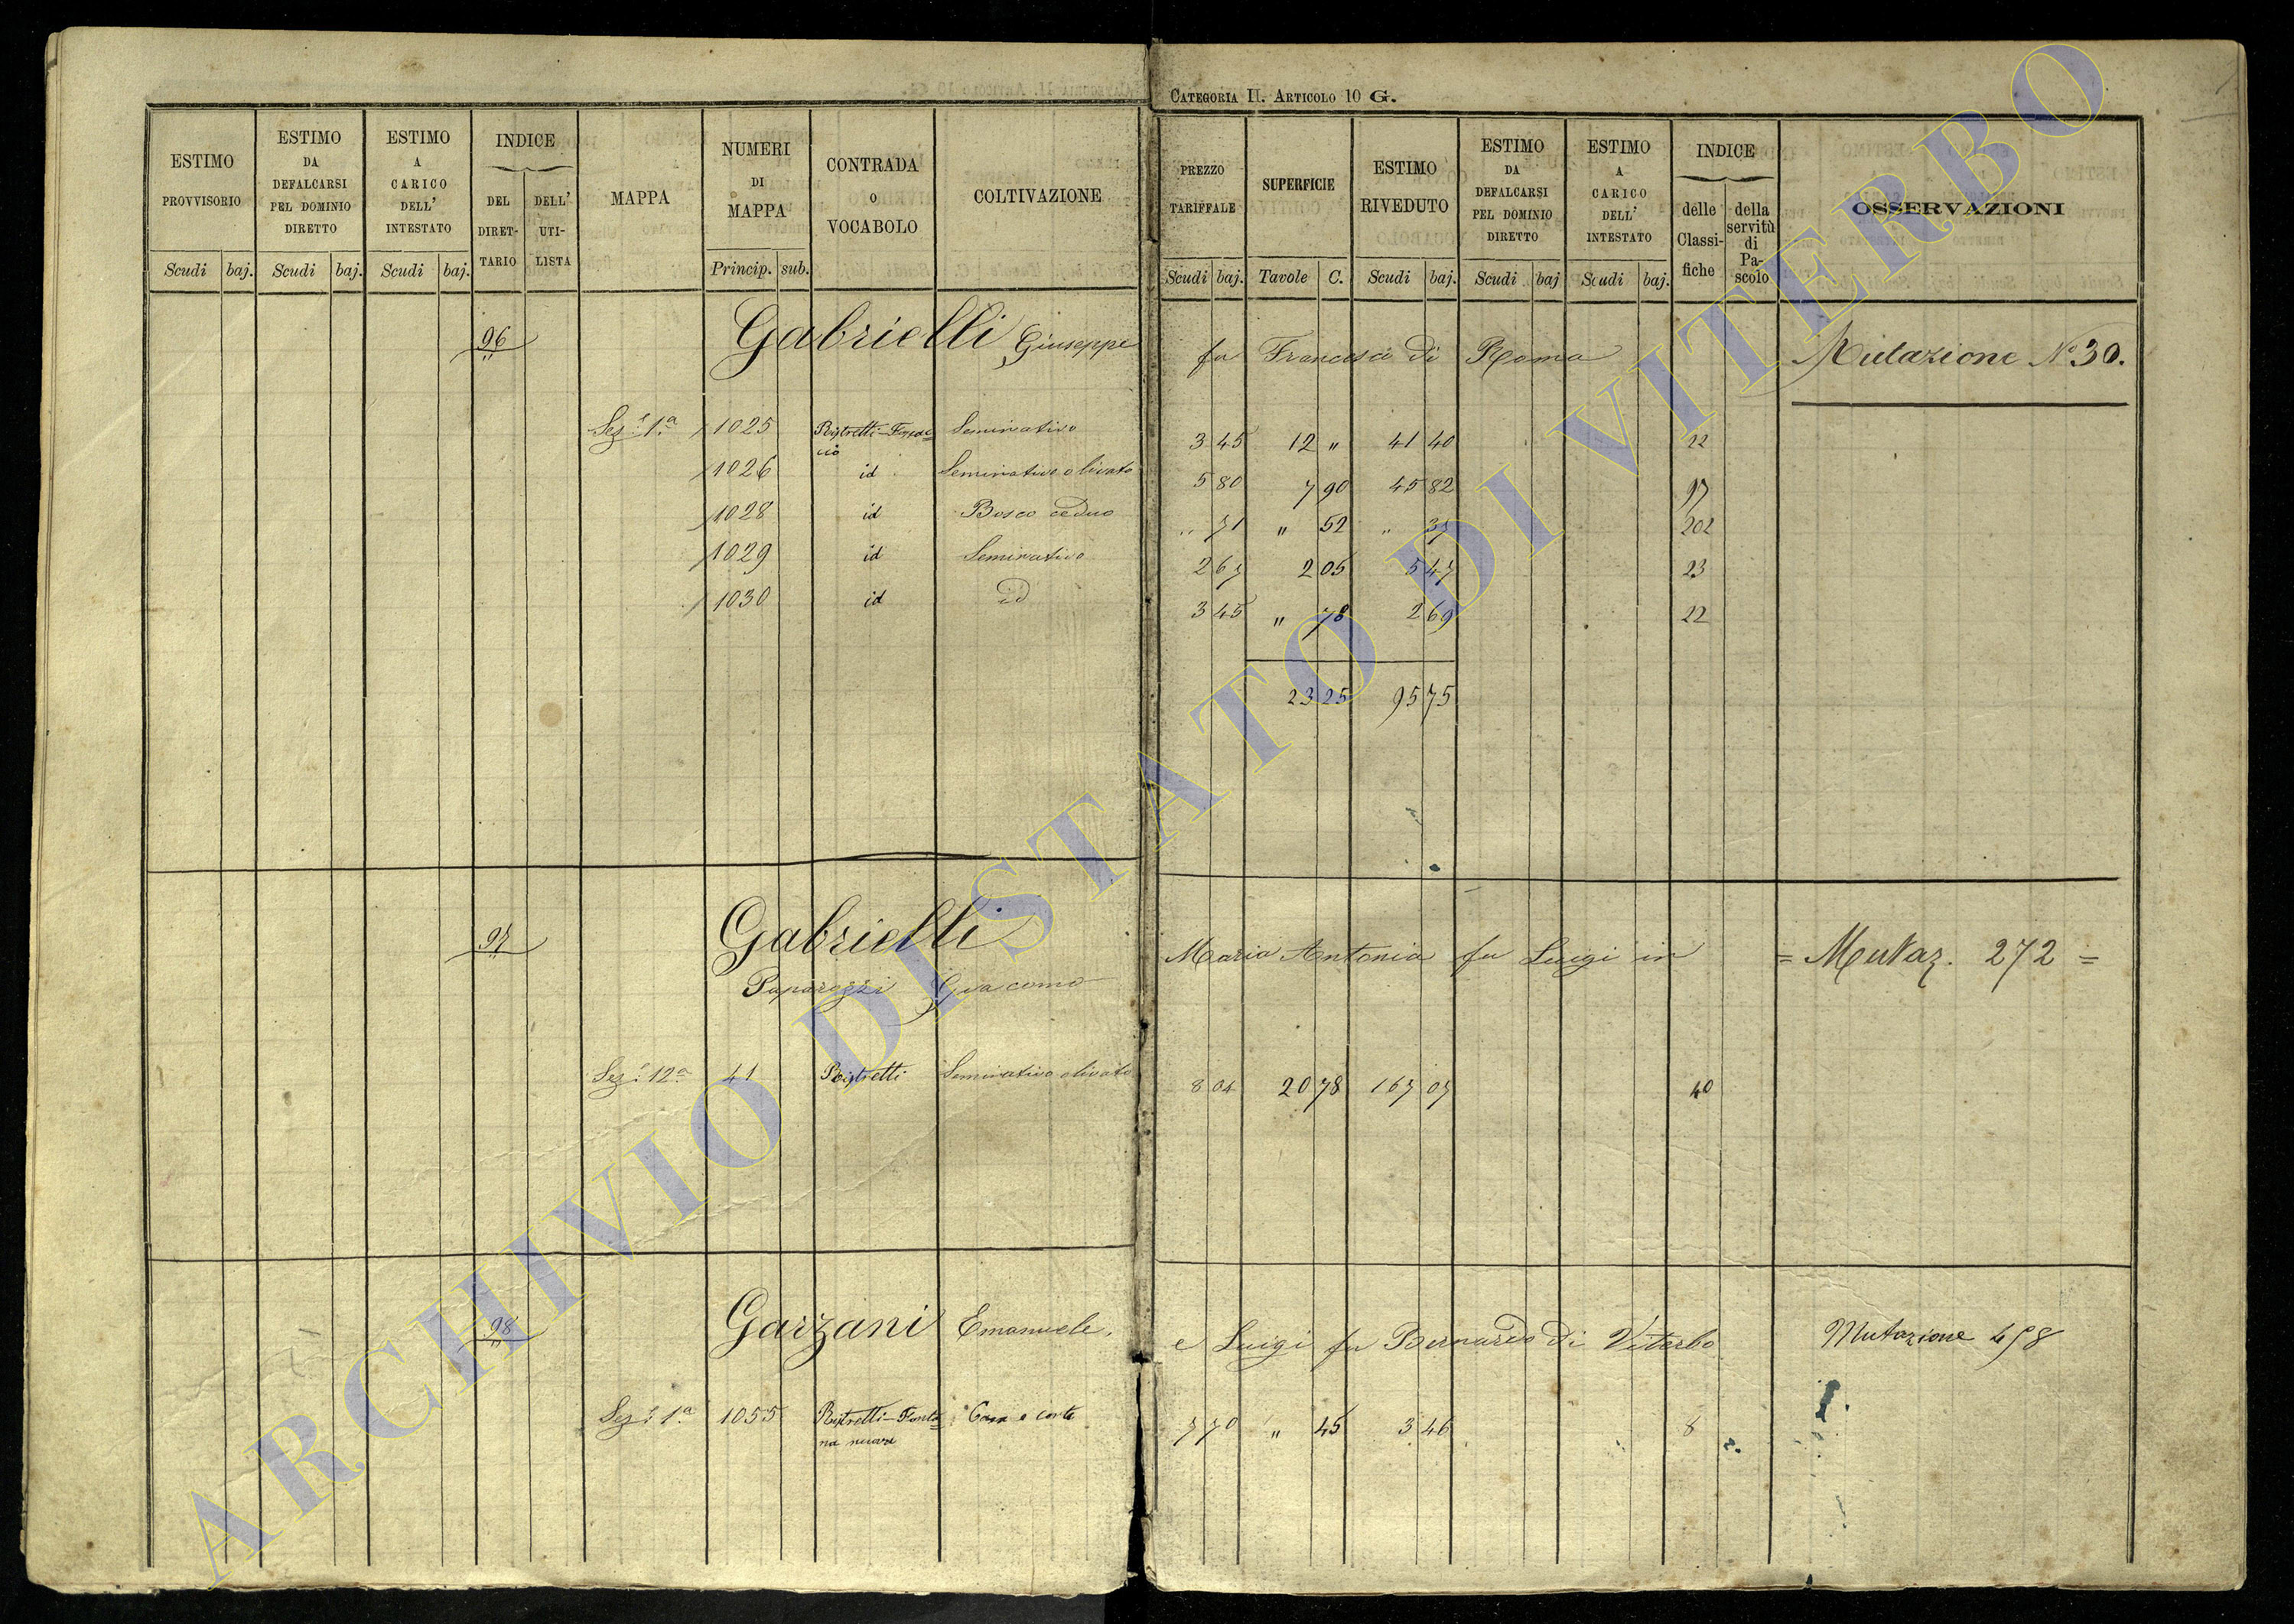 CATEGORIA II. ARTICOLO 10 G.
ESTIMO PROVVISORIO
ESTIMO DA DEFALCARSI PEL DOMINIO DIRETTO
ESTIMO A CARICO DELL' INTESTATO
INDICE
DEL DIRETTARIO
DELL' UTILISTA
MAPPA
NUMERI DI MAPPA
CONTRADA O VOCABOLO
COLTIVAZIONE
Scudi baj. Scudi baj. Scudi baj. Princip. sub.
PREZZO TARIFFALE
SUPERFICIE
ESTIMO RIVEDUTO
ESTIMO DA DEFALCARSI PEL DOMINIO DIRETTO
ESTIMO A CARICO DELL' INTESTATO
INDICE
delle Classifiche
della servitù di Pascolo
OSSERVAZIONI
Scudi baj. Tavole C. Scudi baj. Scudi baj Scudi baj.
96 Gabrielli Giuseppe fu Francesco di Roma Mutazione N° 30.
Sez.e 1a 1025 Ristretti Seminativo 3 45 12 " 41 40 22
1026 id Seminativo olivato 5 80 7 90 45 82 97
1028 id Bosco ceduo " 71 " 52 " 37 202
1029 id Seminativo 2 67 2 05 5 47 23
1030 id id 3 45 " 78 2 69 22
23 25 95 75
97 Gabrielli Maria Antonia fu Luigi in = Mutaz. 272 =
Paparozzi Giacomo
Sez.e 12a 41 Ristretti Seminativo olivato 8 04 20 78 167 07 40
98 Garzani Emanuele. e Luigi fu Bernardo di Viterbo Mutazione 458
Sez.e 1a 1055 Ristretti - Fonta= Casa e corte 7 70 " 45 3 46 8
na nuova
ARCHIVIO DI STATO DI VITERBO